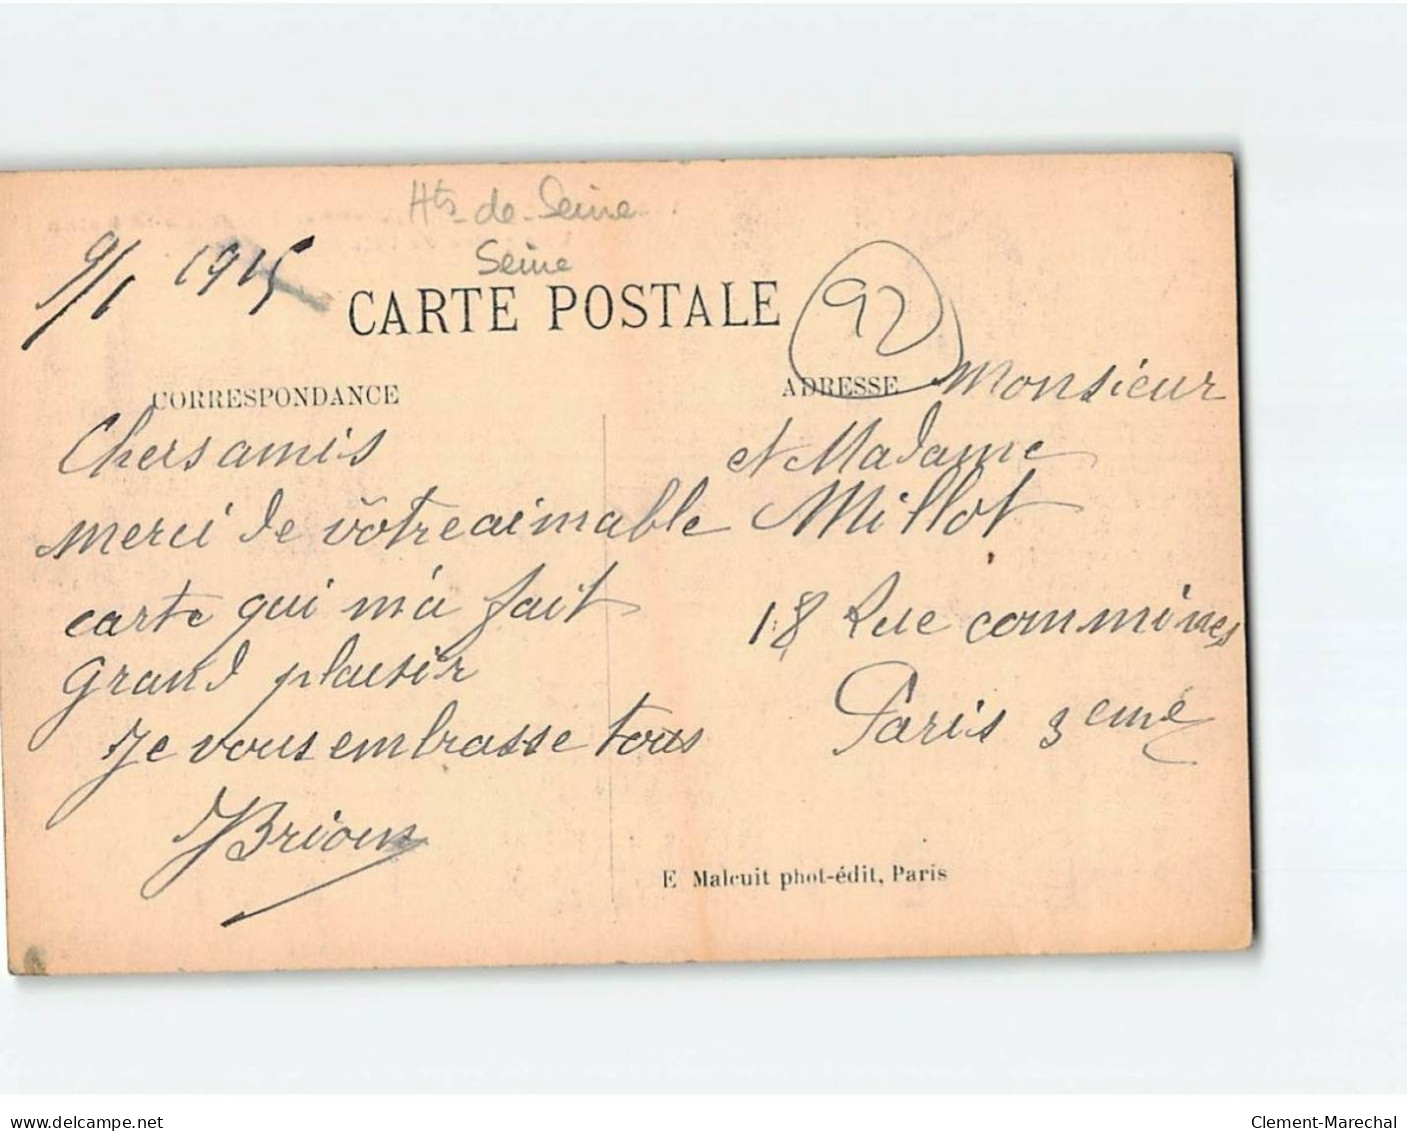 Hts-de-Seine
Seine
9/1 1915
CARTE POSTALE
92
CORRESPONDANCE
Chers amis
merci de vôtre aimable
carte qui m'a fait
grand plaisir
Je vous embrasse tous
JBrioux
ADRESSE
Monsieur
et Madame
Millot
18 Rue commines
Paris 3eme
E Malcuit phot-édit, Paris
www.delcampe.net
Clement-Marechal